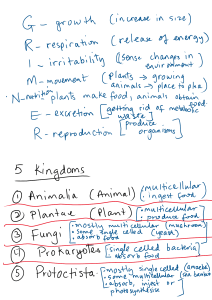 G - growth (increase in size)
R - respiration (release of energy)
I - irritability (sense changes in environment)
M - movement (plants → growing
animals → place to place)
N - nutrition plants make food, animals obtain food
E - excretion (getting rid of metabolic waste)
R - reproduction (produce organisms)
5 Kingdoms
① Animalia (Animal) (multicellular
• ingest food
② Plantae (Plant) (• multicellular
• produce food
③ Fungi • mostly multicellular (mushroom)
• some single celled (yeast)
• absorb food
④ Prokaryotes (single celled bacteria)
absorb food
⑤ Protoctista • mostly single celled (amoeba)
• some multicellular
• absorb, ingest or
photosynthesize